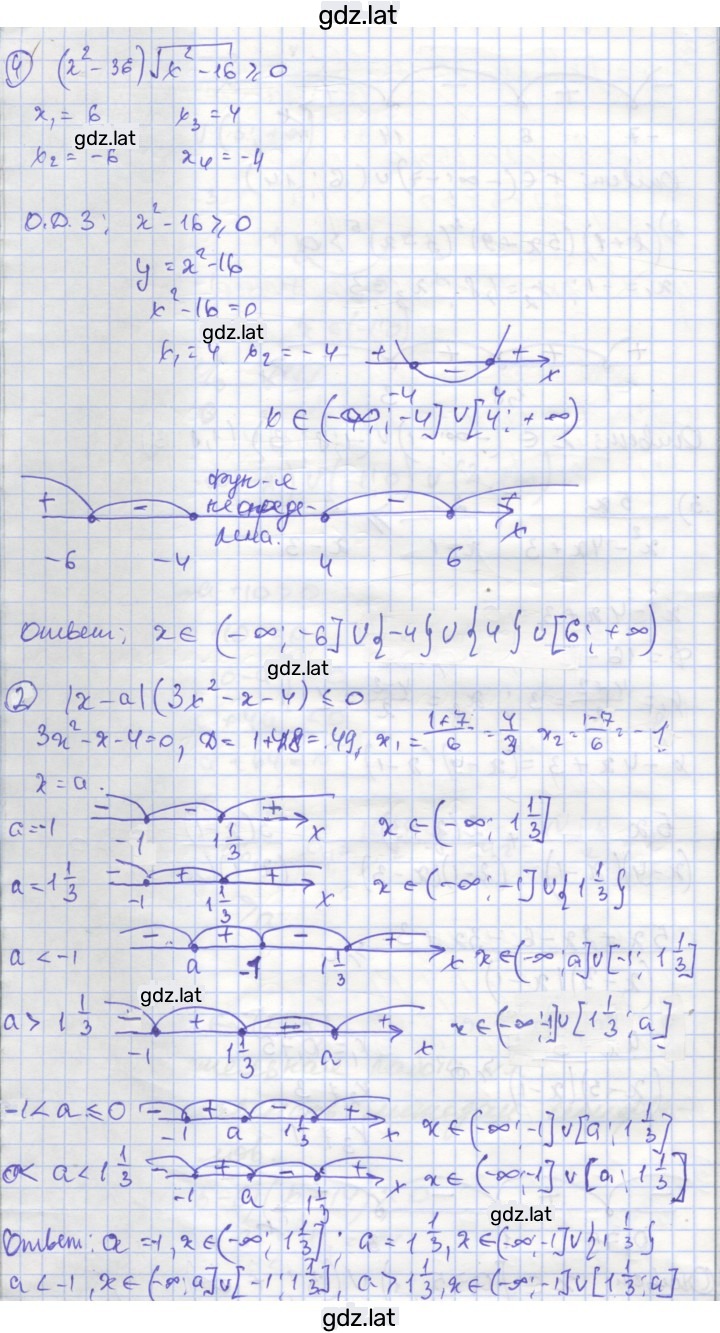 gdz.lat
4) (x² - 36) √x² - 16 ⩾ 0
x₁ = 6   x₃ = 4
gdz.lat
x₂ = -6   x₄ = -4
О.Д.З; x² - 16 ⩾ 0
y = x² - 16
x² - 16 = 0
gdz.lat
x₁ = 4   x₂ = -4   + - + x
-4   4
x ∈ (-∞; -4] ∪ [4; +∞)
+ - фун-я неопреде-лена. - + x
-6   -4   4   6
Ответ; x ∈ (-∞; -6] ∪ {-4} ∪ {4} ∪ [6; +∞)
gdz.lat
2) |x - a| (3x² - x - 4) ⩽ 0
3x² - x - 4 = 0, D = 1 + 48 = 49, x₁ = (1+7)/6 = 4/3   x₂ = (1-7)/6 = -1
x = a.
a = -1   - - + x   -1   1 1/3   x ∈ (-∞; 1 1/3]
a = 1 1/3   - + + x   -1   1 1/3   x ∈ (-∞; -1] ∪ {1 1/3}
a < -1   - + - + x   a   -1   1 1/3   x ∈ (-∞; a] ∪ [-1; 1 1/3]
gdz.lat
a > 1 1/3   - + - + x   -1   1 1/3   a   x ∈ (-∞; -1] ∪ [1 1/3; a]
-1 < a ⩽ 0   - + - + x   -1   a   1 1/3   x ∈ (-∞; -1] ∪ [a; 1 1/3]
0 < a < 1 1/3   - + - + x   -1   a   1 1/3   x ∈ (-∞; -1] ∪ [a; 1 1/3]
gdz.lat
Ответ: a = -1, x ∈ (-∞; 1 1/3]; a = 1 1/3, x ∈ (-∞; -1] ∪ {1 1/3}
a < -1, x ∈ (-∞; a] ∪ [-1; 1 1/3], a > 1 1/3, x ∈ (-∞; -1] ∪ [1 1/3; a]
gdz.lat